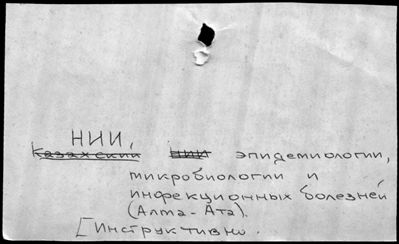 НИИ,
Казахский НИИ эпидемиологии,
микробиологии и
инфекционных болезней
(Алма-Ата).
[Инструктивно.